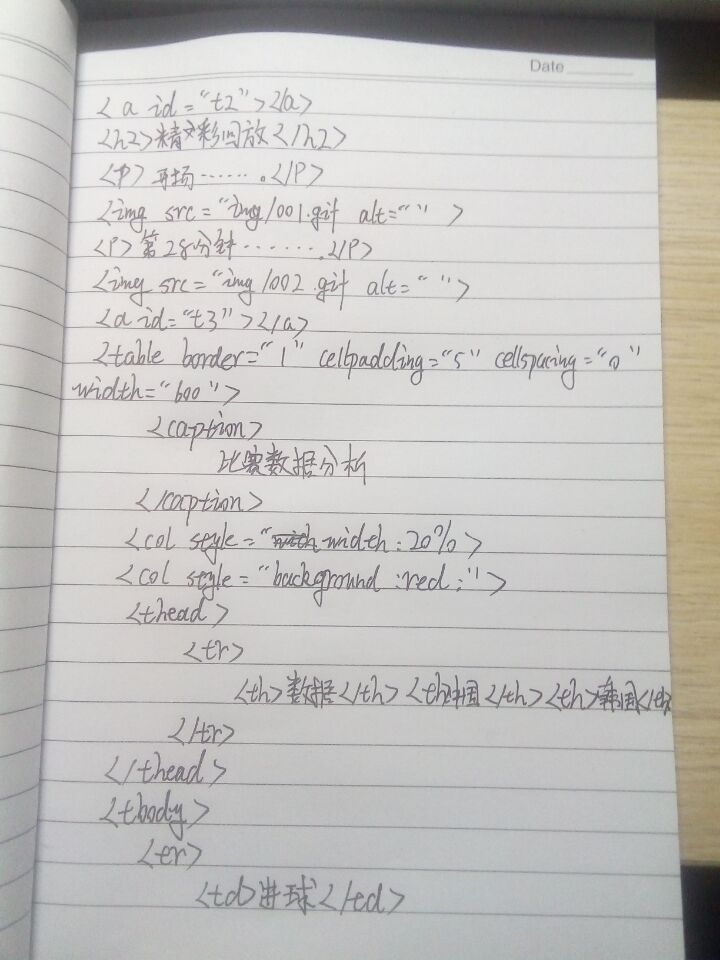 Date
<a id="t2"></a>
<h2>精彩回放</h2>
<p>开场…….</P>
<img src="img/001.gif alt=" ">
<P>第28分钟…….</P>
<img src="img/002.gif alt=" ">
<a id="t3"></a>
<table border="1" cellpadding="5" cellspacing="0"
width="600">
<caption>
比赛数据分析
</caption>
<col style="width:20%>
<col style="background:red;">
<thead>
<tr>
<th>数据</th><th>中国</th><th>韩国</th>
</tr>
</thead>
<tbody>
<tr>
<td>进球</td>